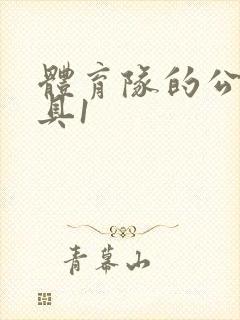 體育隊的公
具1
青幕山